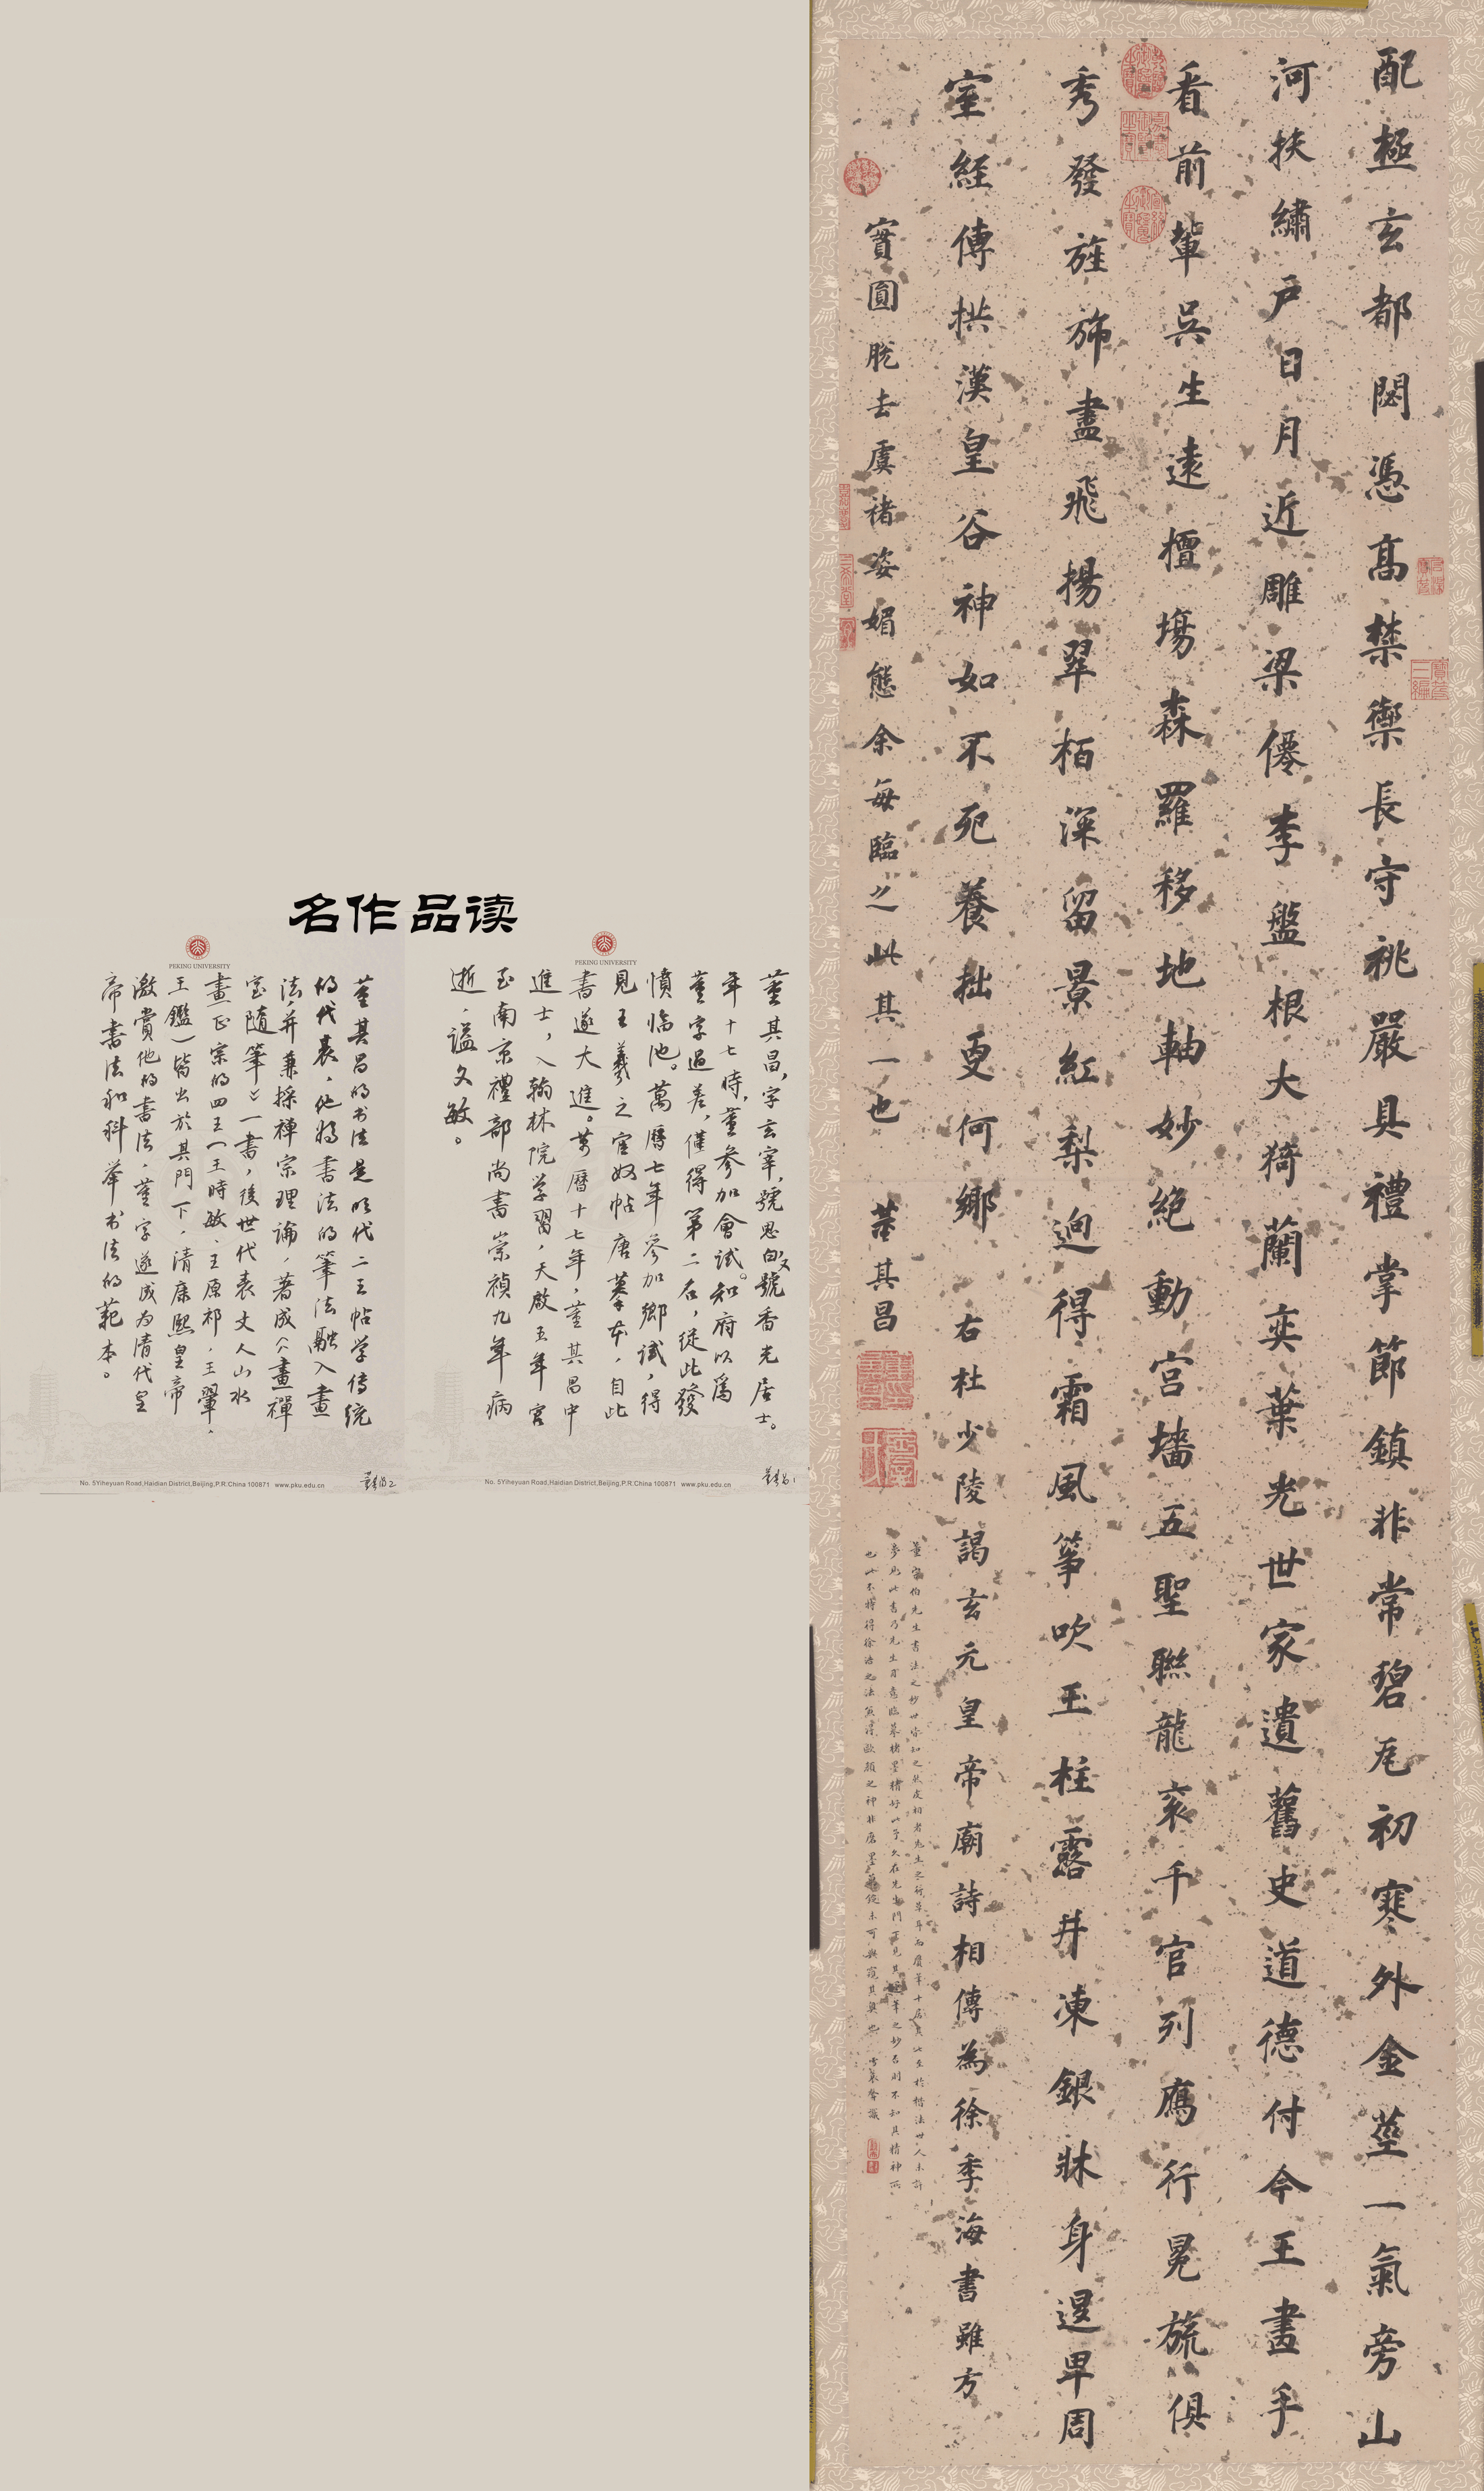 配極玄都閟憑高禁禦長守祧嚴具禮掌節鎮非常碧瓦初寒外金莖一氣旁山
河扶繡戶日月近雕梁僊李盤根大猗蘭奕葉光世家遺舊史道德付今王畫手
看前輩吳生遠擅場森羅移地軸妙絕動宮墻五聖聯龍衮千官列鴈行冕旒俱
秀發旌旆盡飛揚翠栢深留景紅梨逈得霜風箏吹玉柱露井凍銀牀身退卑周
室經傳拱漢皇谷神如不死養拙更何鄉 右杜少陵謁玄元皇帝廟詩相傳為徐季海書雖方
實圓脫去虞褚姿媚態余每臨之此其一也 董其昌
名作品读
PEKING UNIVERSITY
董其昌,字玄宰,號思白,又號香光居士。
年十七時,董参加會試。知府以爲
董字過差,僅得第二名,從此發
憤临池。萬曆七年参加鄉試,得
見王羲之官奴帖唐摹本,自此
書遂大進。萬曆十七年,董其昌中
進士,入翰林院学習,天啟五年官
至南京禮部尚書崇禎九年病
逝,謚文敏。
No. 5Yiheyuan Road,Haidian District,Beijing,P.R.China 100871 www.pku.edu.cn
PEKING UNIVERSITY
董其昌的书法是明代二王帖学传统
的代表,他将書法的筆法融入畫
法,并兼採禅宗理論,著成《畫禪
室随筆》一書,後世代表文人山水
畫正宗的四王(王時敏、王原祁、王翬、
王鑑)皆出於其門下,清康熙皇帝
激賞他的書法,董字遂成为清代皇
帝書法和科举书法的範本。
No. 5Yiheyuan Road,Haidian District,Beijing,P.R.China 100871 www.pku.edu.cn